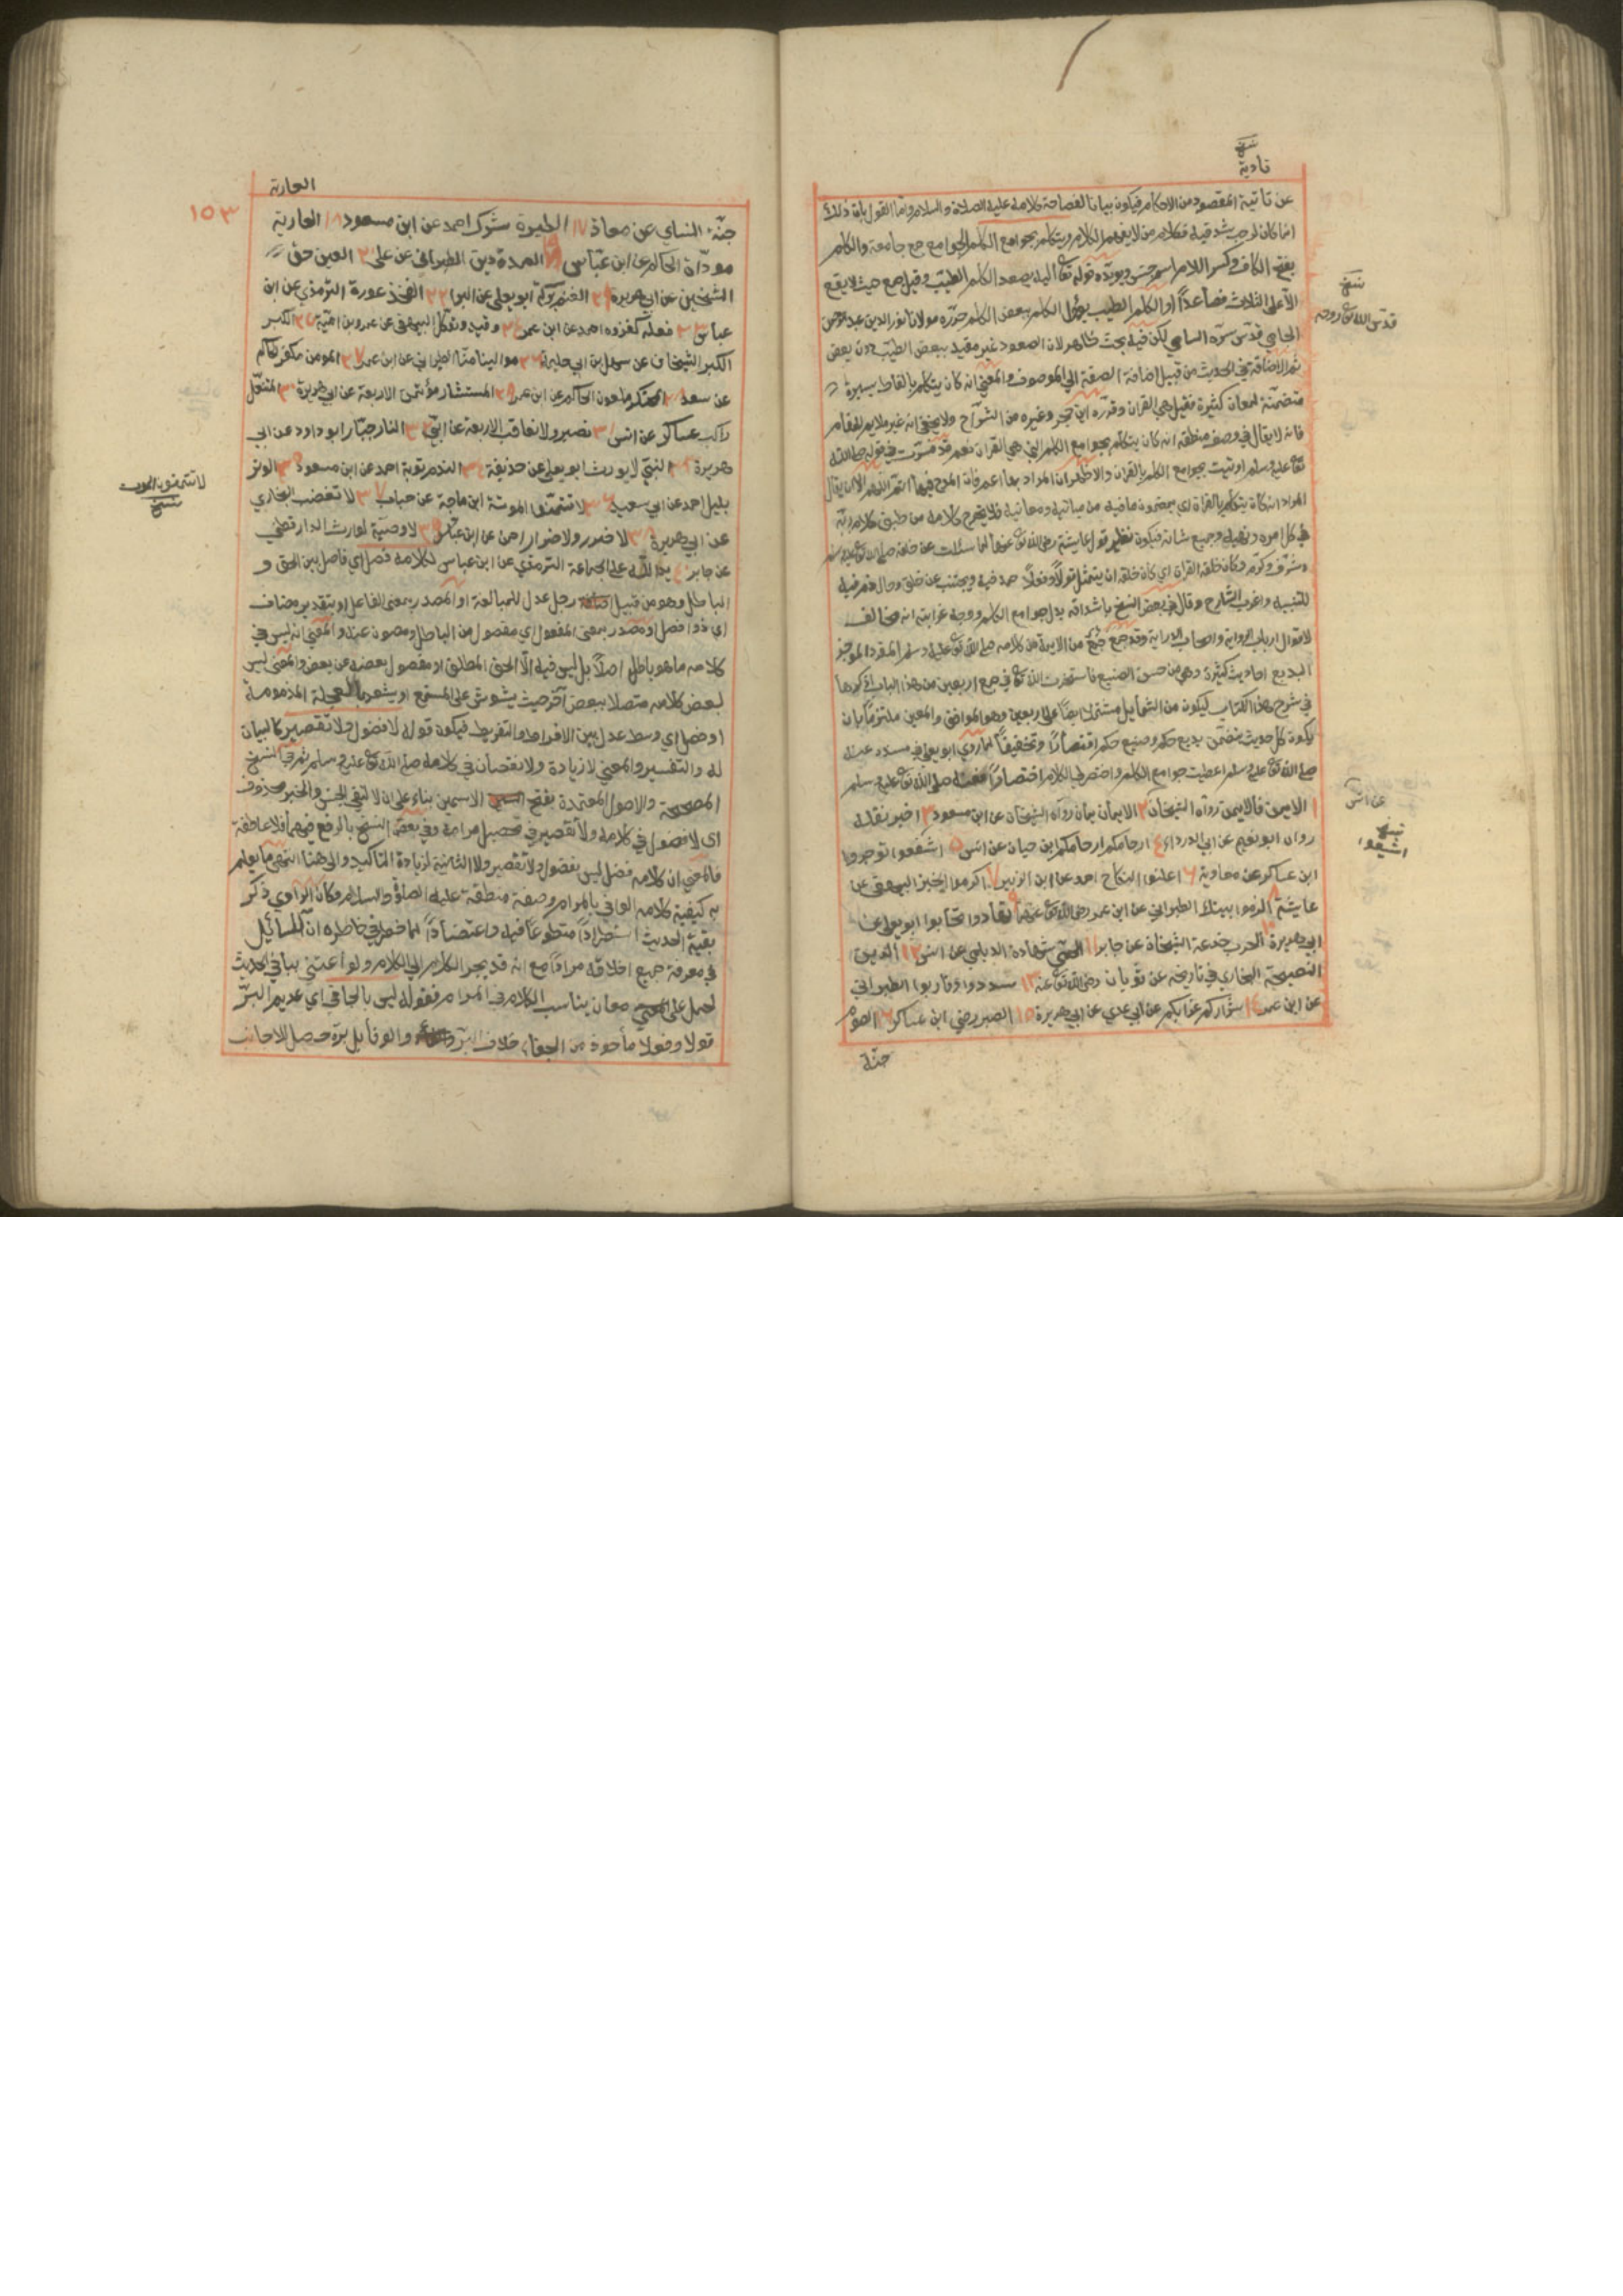 نسخة
تأدية
عن تأدية المقصود من الاحكام فيكون بيانا لفصاحة كلامه عليه الصلاة والسلام واما القول بان ذلك
انما كان لرحب شدقيه فكلام من لا يفهم الكلام ويتكلم بجوامع الكلم الجوامع جمع جامعة والكلم
بفتح الكاف وكسر اللام اسم جنس ويؤيده قوله تعا اليه يصعد الكلم الطيب وقيل جمع حيث لا يقع
الا على الثلاث فصاعداً او الكلم الطيب يؤول الكلم ببعض الكلم حرره مولانا نور الدين عبد الرحمن
الجامي قدس سره السامي لكن فيه بحث ظاهر لان الصعود غير مقيد ببعض الطيب دون بعض
ثم الاضافة في الحديث من قبيل اضافة الصفة الى الموصوف والمعنى انه كان يتكلم بالفاظ يسيرة
متضمنة لمعان كثيرة فقيل هي القران وقرره ابن حجر وغيره من الشراح ولا يخفى انه غير ملايم للمقام
فانه لا يقال في وصف منطقه انه كان يتكلم بجوامع الكلم التي هي القران نعم قد فسرت في قوله صلى الله
تعا عليه وسلم اوتيت بجوامع الكلم بالقران والاظهر ان المراد بها اعم فان المدح فيها اتم اللهم الا ان يقال
المراد انه كان يتكلم بالقران اي بمضمون ما فيه من مبانيه ومعانيه فلا يخرج كلامه من طبق كلام ربه
في كل امره ونهيه وجميع شانه فيكون نظير قول عايشة رضى الله تعا عنها لما سئلت عن خلقه صلى الله تعا عليه وسلم
وشرف وكرم وكان خلقه القران اي كان خلقه ان يتمثل قولاً وفعلاً حمد فيه ويجتنب عن خلق وحال ذم فيه
للتنبيه واغرب الشارح وقال في بعض النسخ باشداقه بدل جوامع الكلم ووجه غرابته انه مخالف
لاقوال ارباب الرواية واصحاب الدراية وقد جمع جمع من الايمة من كلامه صلى الله تعا عليه وسلم المفرد الموجز
البديع احاديث كثيرة وهي من حسن الصنيع فاستخرت الله تعا في جمع اربعين من هذا الباب اذكرها
في شرح هذا الكتاب ليكون من الشمايل مشتملا ايضا على اربعين وهو الموافق والمعين ملتزماً بان
يكون كل حديث يتضمن بديع حكم وصنيع حكم اقتصاراً وتخفيفاً لما روى ابو يعلى في مسنده عنه
صلى الله تعا عليه وسلم اعطيت جوامع الكلم واختصر لي الكلام اختصاراً فعنه صلى الله تعا عليه وسلم
١ الايمن فالايمن رواه الشيخان ٢ الايمان يمان رواه الشيخان عن ابن مسعود ٣ اخبر تقله
رواه ابو نعيم عن ابي الدرداء ٤ ارحامكم ارحامكم ابن حبان عن انس ٥ اشفعوا توجروا
ابن عساكر عن معاوية ٦ اعلنوا النكاح احمد عن ابن الزبير ٧ اكرموا الخبز البيهقي عن
عايشة ٨ الزموا بيتك الطبراني عن ابن عمر رضى الله تعا عنهما ٩ تهادوا تحابوا ابو يعلى عن
ابي هريرة ١٠ الحرب خدعة الشيخان عن جابر ١١ الحمى شهادة الديلمي عن انس ١٢ الدين
النصيحة البخاري في تاريخه عن ثوبان رضى الله تعا عنه ١٣ سددوا وقاربوا الطبراني
عن ابن عمر ١٤ شراركم عزابكم عن ابي عدي عن ابي هريرة ١٥ الصبر رضى ابن عساكر ١٦ الصوم
جنة
نسخة
قدس الله تعا روحه
عن انس
نسخة
اشفعوا
العارية
١٥٣
جنة النساي عن معاذ ١٧ الطيرة شرك احمد عن ابن مسعود ١٨ العارية
موداة الحاكم عن ابن عباس ١٩ العدة دين الطبراني عن علي ٢٠ العين حق
الشيخين عن ابي هريرة ٢١ الغنم بركة ابو يعلى عن البرا ٢٢ الفخذ عورة الترمذي عن ابن
عباس ٢٣ قفلة كغزوه احمد عن ابن عمر ٢٤ وقيد وتوكل البيهقي عن عمرو بن امية ٢٥ الكبر
الكبر الشيخان عن سهل بن ابي حثمة ٢٦ موالينا منا الطبراني عن ابن عمر ٢٧ المومن مكفر الحاكم
عن سعد ٢٨ المحتكر ملعون الحاكم عن ابن عمر ٢٩ المستشار مؤتمن الاربعة عن ابي هريرة ٣٠ المنتعل
راكب عساكر عن انس ٣١ نصبر ولا نعاقب الاربعة عن ابي ٣٢ النار جبار ابو داود عن ابي
هريرة ٣٣ النبي لا يورث ابو يعلى عن حذيفة ٣٤ الندم توبة احمد عن ابن مسعود ٣٥ الوتر
بليل احمد عن ابي سعيد ٣٦ لا تتمنوا الموتة ابن ماجة عن خباب ٣٧ لا تغضب البخاري
عن ابي هريرة ٣٨ لا ضرر ولا ضرار احمد عن ابن عباس ٣٩ لا وصية لوارث الدارقطني
عن جابر ٤٠ يد الله على الجماعة الترمذي عن ابن عباس لكلامه فصل اي فاصل بين الحق و
الباطل وهو من قبيل رجل عدل للمبالغة او المصدر بمعنى الفاعل او بتقدير مضاف
اي ذو فصل او مصدر بمعنى المفعول اي مفصول من الباطل ومصون عنه والمعنى انه ليس في
كلامه ما هو باطل اصلاً بل ليس فيه الا الحق المطلق او مفصول بعضه عن بعض والمعنى ليس
لبعض كلامه متصلا ببعض آخر حيث يشوش على المستمع او يشعر بالعجلة المذمومة
او فصل اي وسط عدل بين الافراط والتفريط فيكون قوله لا فضول ولا تقصير كالبيان
له والتفسير والمعنى لا زيادة ولا نقصان في كلامه صلى الله تعا عليه وسلم ثم في النسخ
المصححة والاصول المعتمدة بفتح الاسمين بناء على ان لا لنفي الجنس والخبر محذوف
اى لا فضول في كلامه ولا تقصير في تحصيل مرامه وفي بعض النسخ بالرفع فيهما فلا عاطفة
فالمعنى ان كلامه فصل ليس بفضول ولا تقصير ولا الثانية لزيادة التاكيد والى هنا انتهى ما يعلم
به كيفية كلامه الوافي بالمرام وصفة منطقه عليه الصلوة والسلام وكأن الراوي ذكر
بقية الحديث استطراداً متطوعاً فيه واعتضاداً لما خطر في خاطره ان السائل
في معرفة جميع اخلاقه مراداً مع انه قد يجر الكلام الى الكلام ولو اعتنى بباقي الحديث
لحمل على معان يناسب الكلام في المرام فقوله ليس بالجافي اي عديم البر
قولا وفعلا مأخوذ من الجفاء خلاف البر والوفا بل بره حصل للاجانب
لا تتمنوا الموت
نسخة